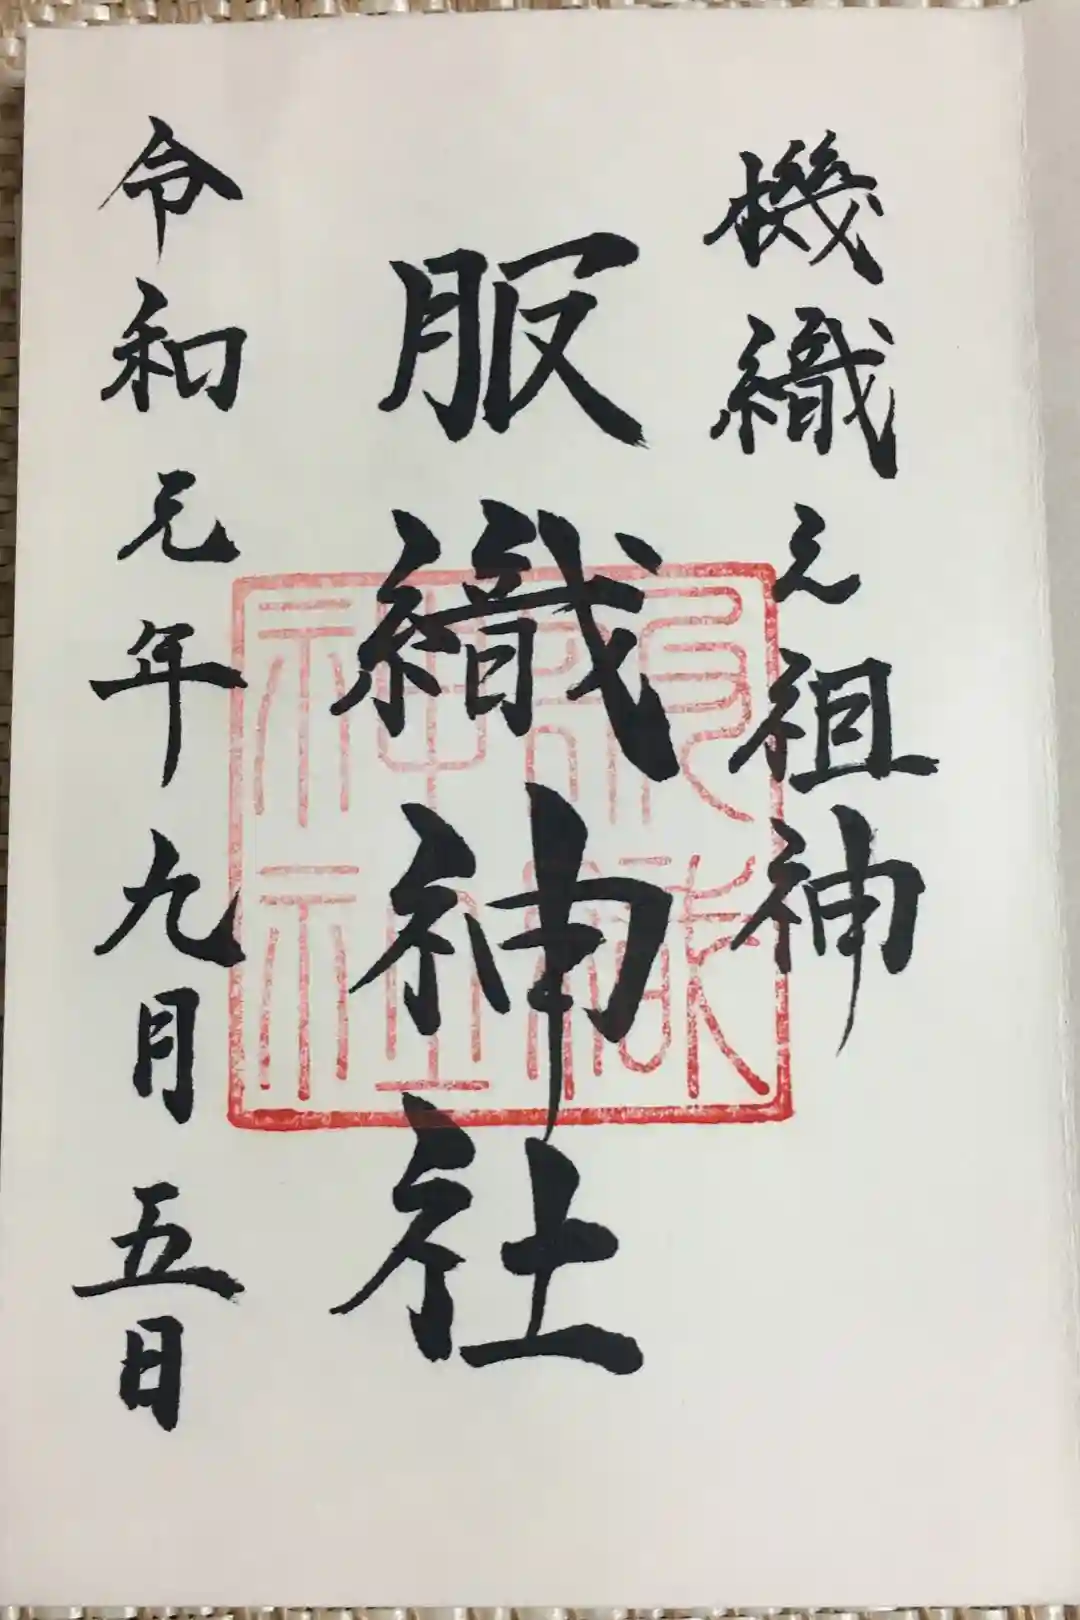 機織元祖神
服織神社
服織神社
令和元年九月五日